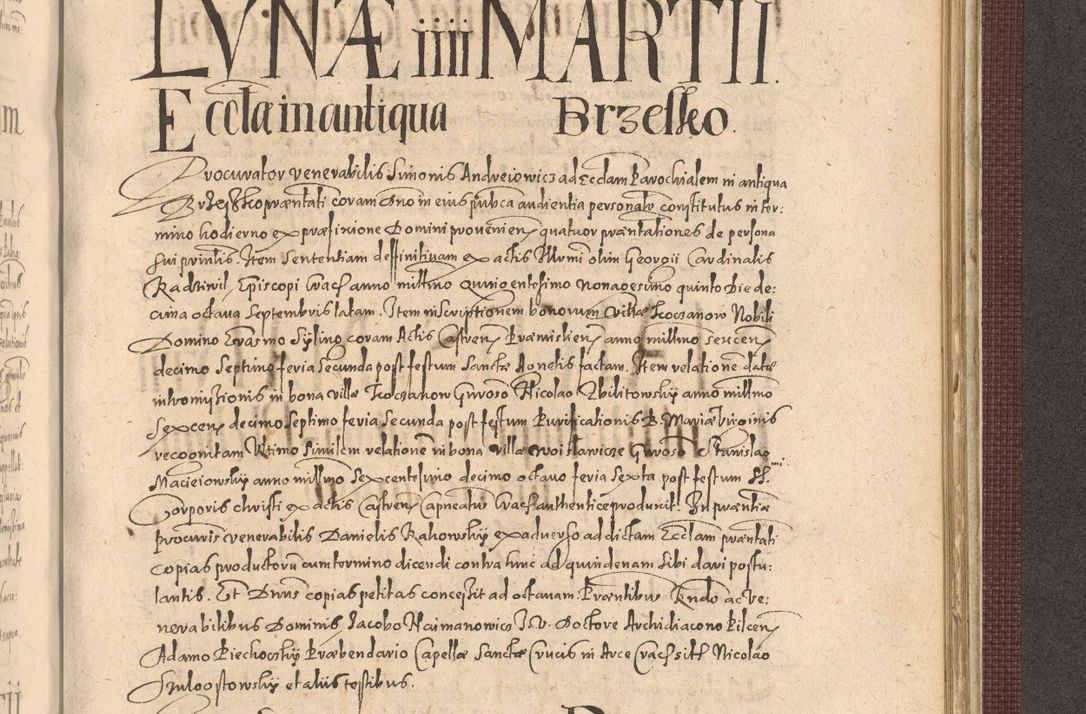 LVNÆ iiii MARTII.
Eccła in antiqua Brzesko.
Procurator venerabilis Simonis Andreiowicz ad Eccłam Parochialem in antiqua
Brzesko præntati coram Dno in eius publica audientia personalr constitutus in ter:
mino hodierno ex præfinione Domini provenien quatuor præntationes de persona
sui principalis. Item Sententiam deffinitiuam ex actis Illrmi olim Georgii Cardinalis
Radziwil, Episcopi Crac anno millmo Quingentesimo nonagesimo quinto Die de:
cima octava Septembris latam. Item inscriptionem bonorum villæ Troczanow Nobili
Domino Erasmo Syling coram Actis Castren Præmislien anno millmo sexcen
decimo Septimo feria secunda post festum Sanctæ Agnetis factam. Item relationē datæ
intromissionis in bona villæ Troczanow Gnroso Nicolao Zbilitowsky anno millmo
Sexcen decimo Septimo feria Secunda post festum Purificationis B. Mariæ Virginis
recognitam Ultimo Similem relationē in bona villæ Woislawice Gnroso Stanislao
Macieiowsky anno millmo Sexcentesimo decimo octavo feria Sexta post festum SS.mi
Corporis christi ex actis Castren Capneatus Crac authentice producit. In præntia
procuris venerabilis Danielis Rakowsky ex aduerso ad dictam Eccłam præntati
copias productorū cum termino dicendi contra hinc ad quindenam sibi dari postu:
lantis. Et Dnus copias petitas concessit ad octavam. Præntibus Rendo ac ve:
nerabilibus Dominis Jacobo Naimanowicz I. V. Doctore Archidiacono Pilcen
Adamo Piechocsky Præbendario Capellæ Sanctæ Crucis in Arce Crac sitæ Nicolao
Szulgostowsky et aliis testibus.